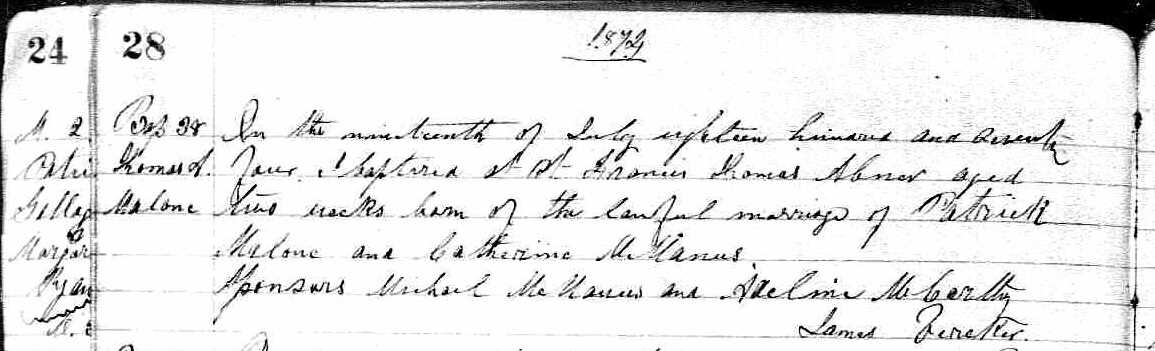 24 28 1874
M. 2 Bap 38 On the nineteenth of July eighteen hundred and seventy
Patri Thomas A. four I baptized at St Francis Thomas Abner aged
Gallag Malone two weeks born of the lawful marriage of Patrick
Margar Malone and Catherine McManus.
Ryan Sponsors Michael McManus and Adeline McCarthy
James